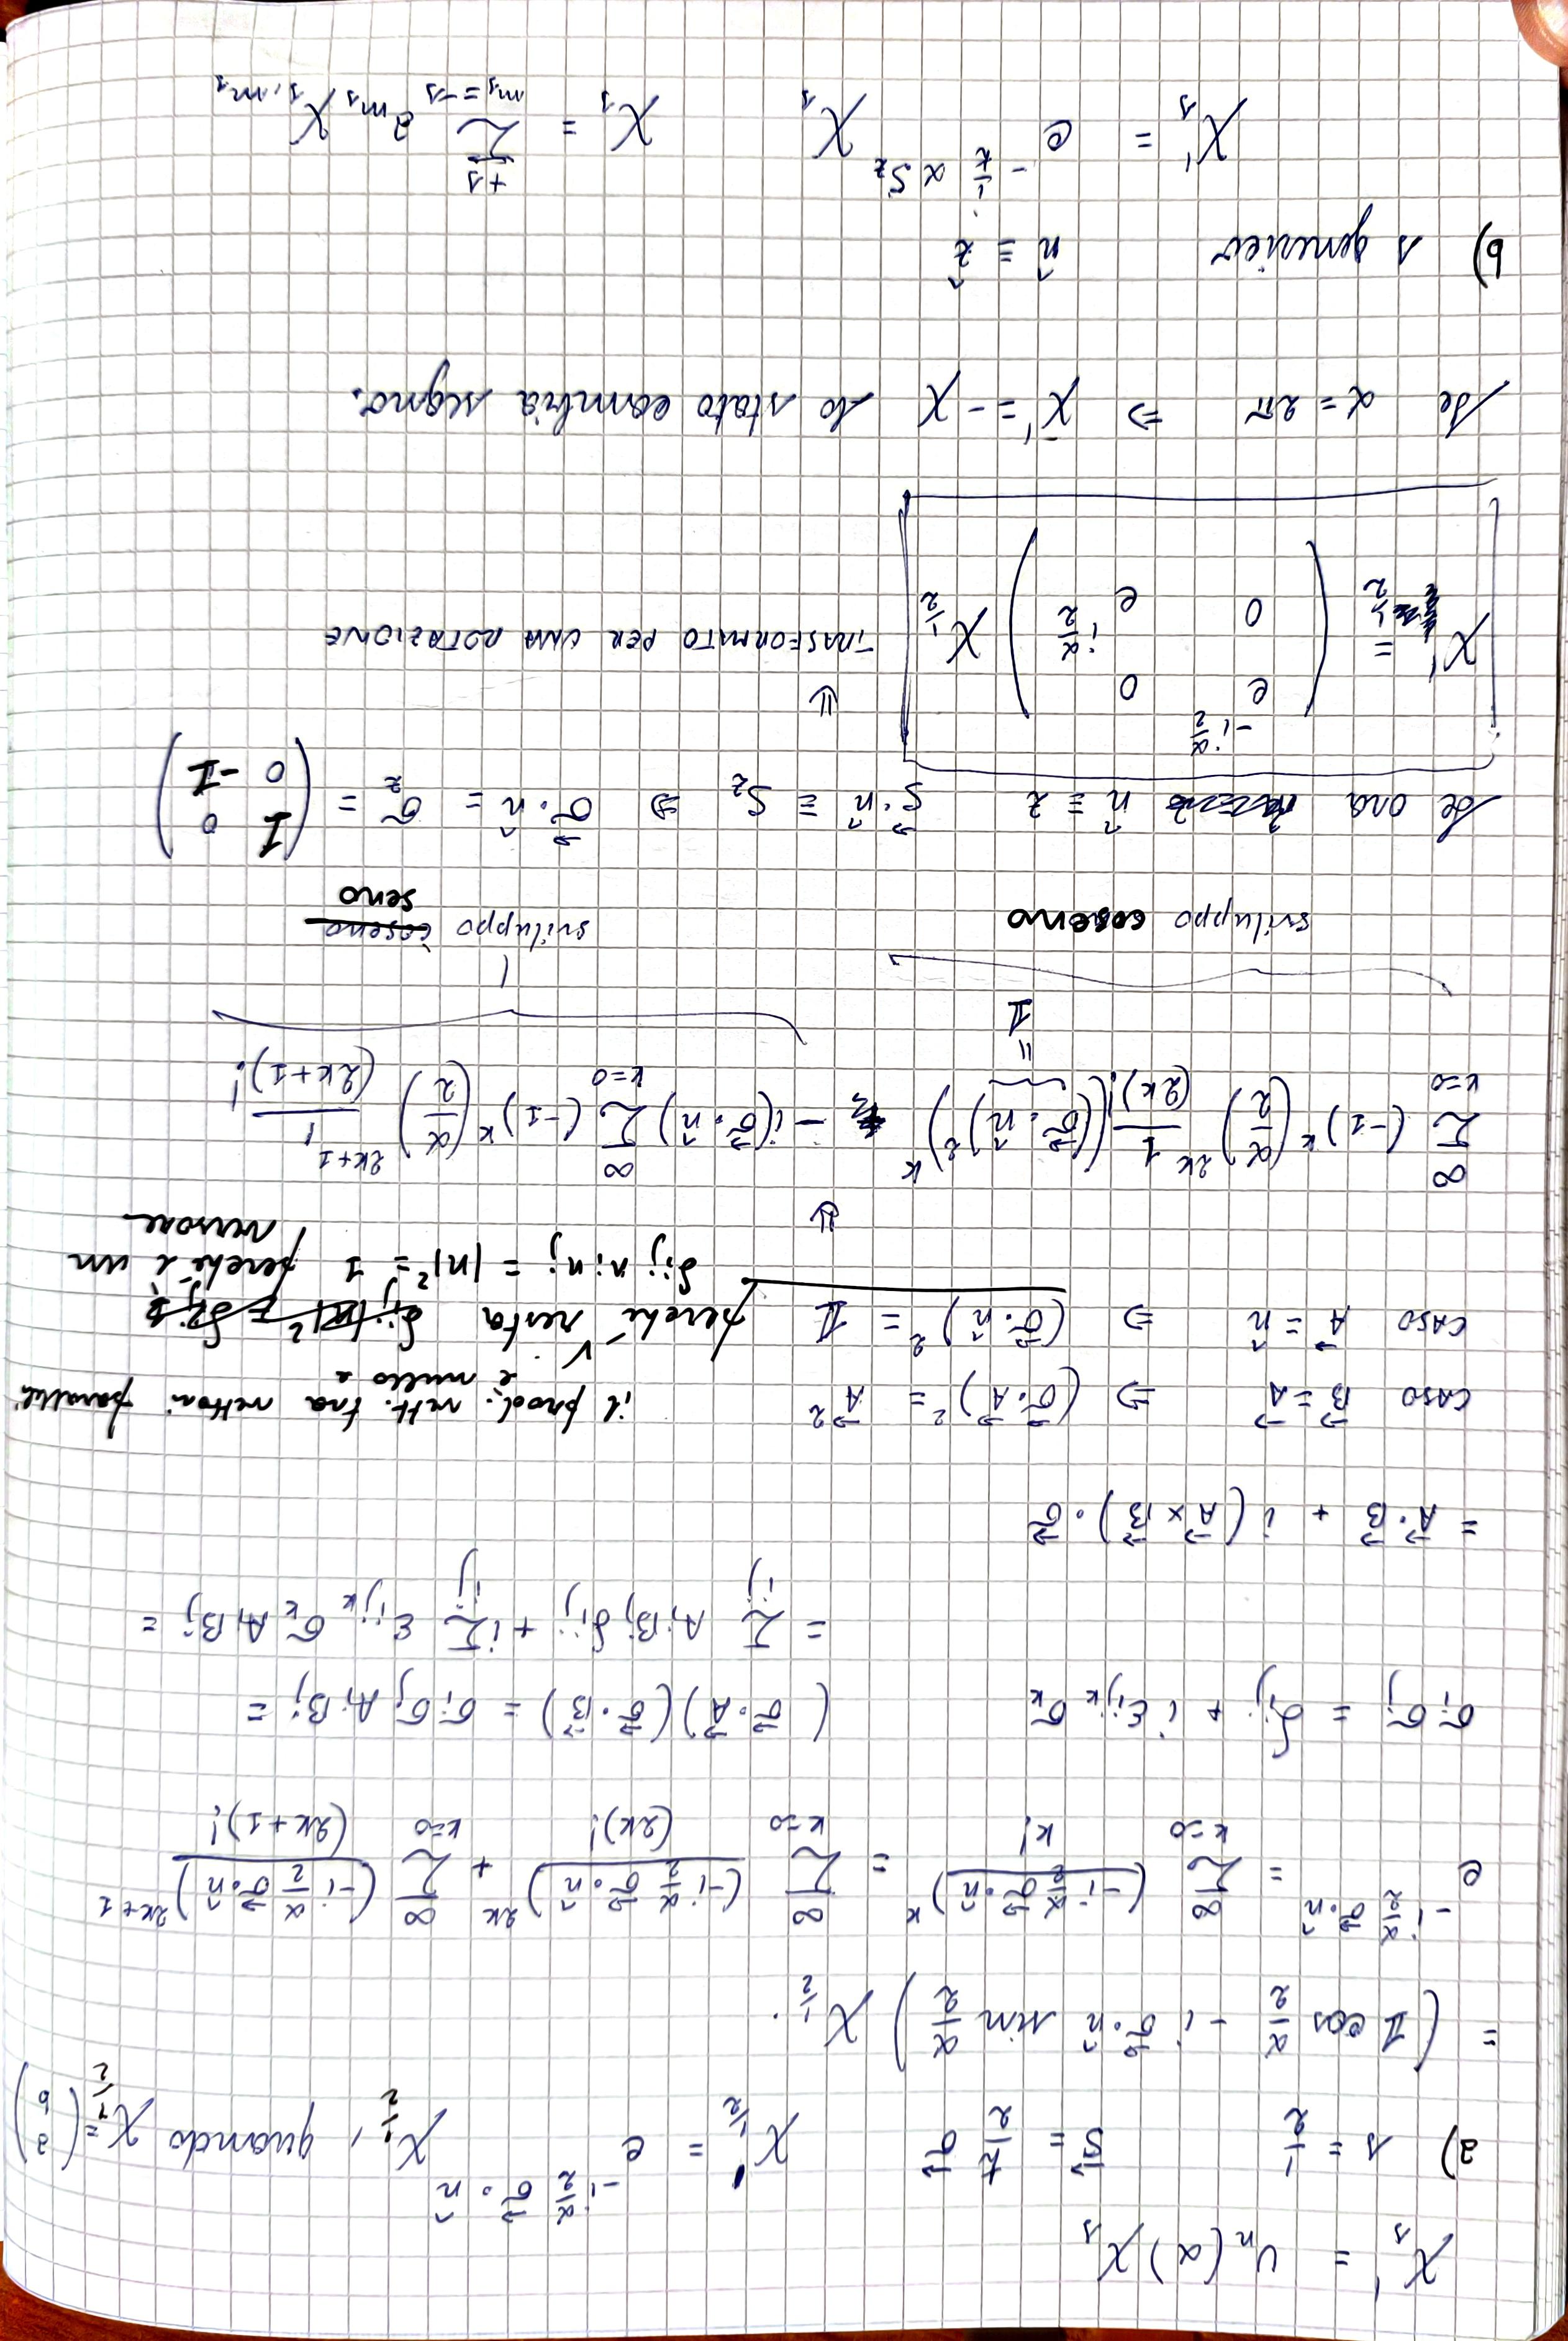 χ_s' = U_n(α) χ_s
a) s = 1/2   S⃗ = ħ/2 σ⃗   χ'_{1/2} = e^{-i α/2 σ⃗·n̂} χ_{1/2}, quando χ_{1/2} = (a b)
= (𝟙 cos α/2 - i σ⃗·n̂ sin α/2) χ_{1/2}.
e^{-i α/2 σ⃗·n̂} = Σ_{k=0}^∞ (-i α/2 σ⃗·n̂)^k / k! = Σ_{k=0}^∞ (-i α/2 σ⃗·n̂)^{2k} / (2k)! + Σ_{k=0}^∞ (-i α/2 σ⃗·n̂)^{2k+1} / (2k+1)!
σ_i σ_j = δ_ij + i ε_ijk σ_k   (σ⃗·A⃗)(σ⃗·B⃗) = σ_i σ_j A_i B_j =
= Σ_ij A_i B_j δ_ij + i Σ_ij ε_ijk σ_k A_i B_j =
= A⃗·B⃗ + i (A⃗×B⃗)·σ⃗
CASO B⃗ = A⃗ ⇒ (σ⃗·A⃗)² = A⃗²   il prod. vett. tra vettori paralleli
è nullo e
CASO A⃗ = n̂ ⇒ (σ⃗·n̂)² = 𝟙 perché resta
δ_ij n_i n_j = |n|² = 1 perché è un
versore
⇓
Σ_{k=0}^∞ (-1)^k (α/2)^{2k} 1/(2k)! ((σ⃗·n̂)²)^k - i(σ⃗·n̂) Σ_{k=0}^∞ (-1)^k (α/2)^{2k+1} 1/(2k+1)!
=
𝟙
sviluppo coseno   sviluppo coseno
seno
Se ora n̂ ≡ z   S⃗·n̂ ≡ S_z ⇒ σ⃗·n̂ = σ_z = (1 0 0 -1)
χ'_{1/2} = (e^{-i α/2} 0 0 e^{i α/2}) χ_{1/2}
⇓
TRASFORMATO PER UNA ROTAZIONE
Se α = 2π ⇒ χ' = -χ lo stato cambia segno.
b) s generico   n̂ ≡ ẑ
χ'_s = e^{-i/ħ α S_z} χ_s   χ_s = Σ_{m_s=-s}^{+s} a_{m_s} χ_{s,m_s}